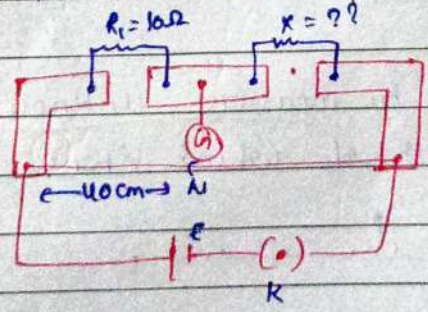 R₁ = 10Ω
X = ??
G
40cm
N
E
K